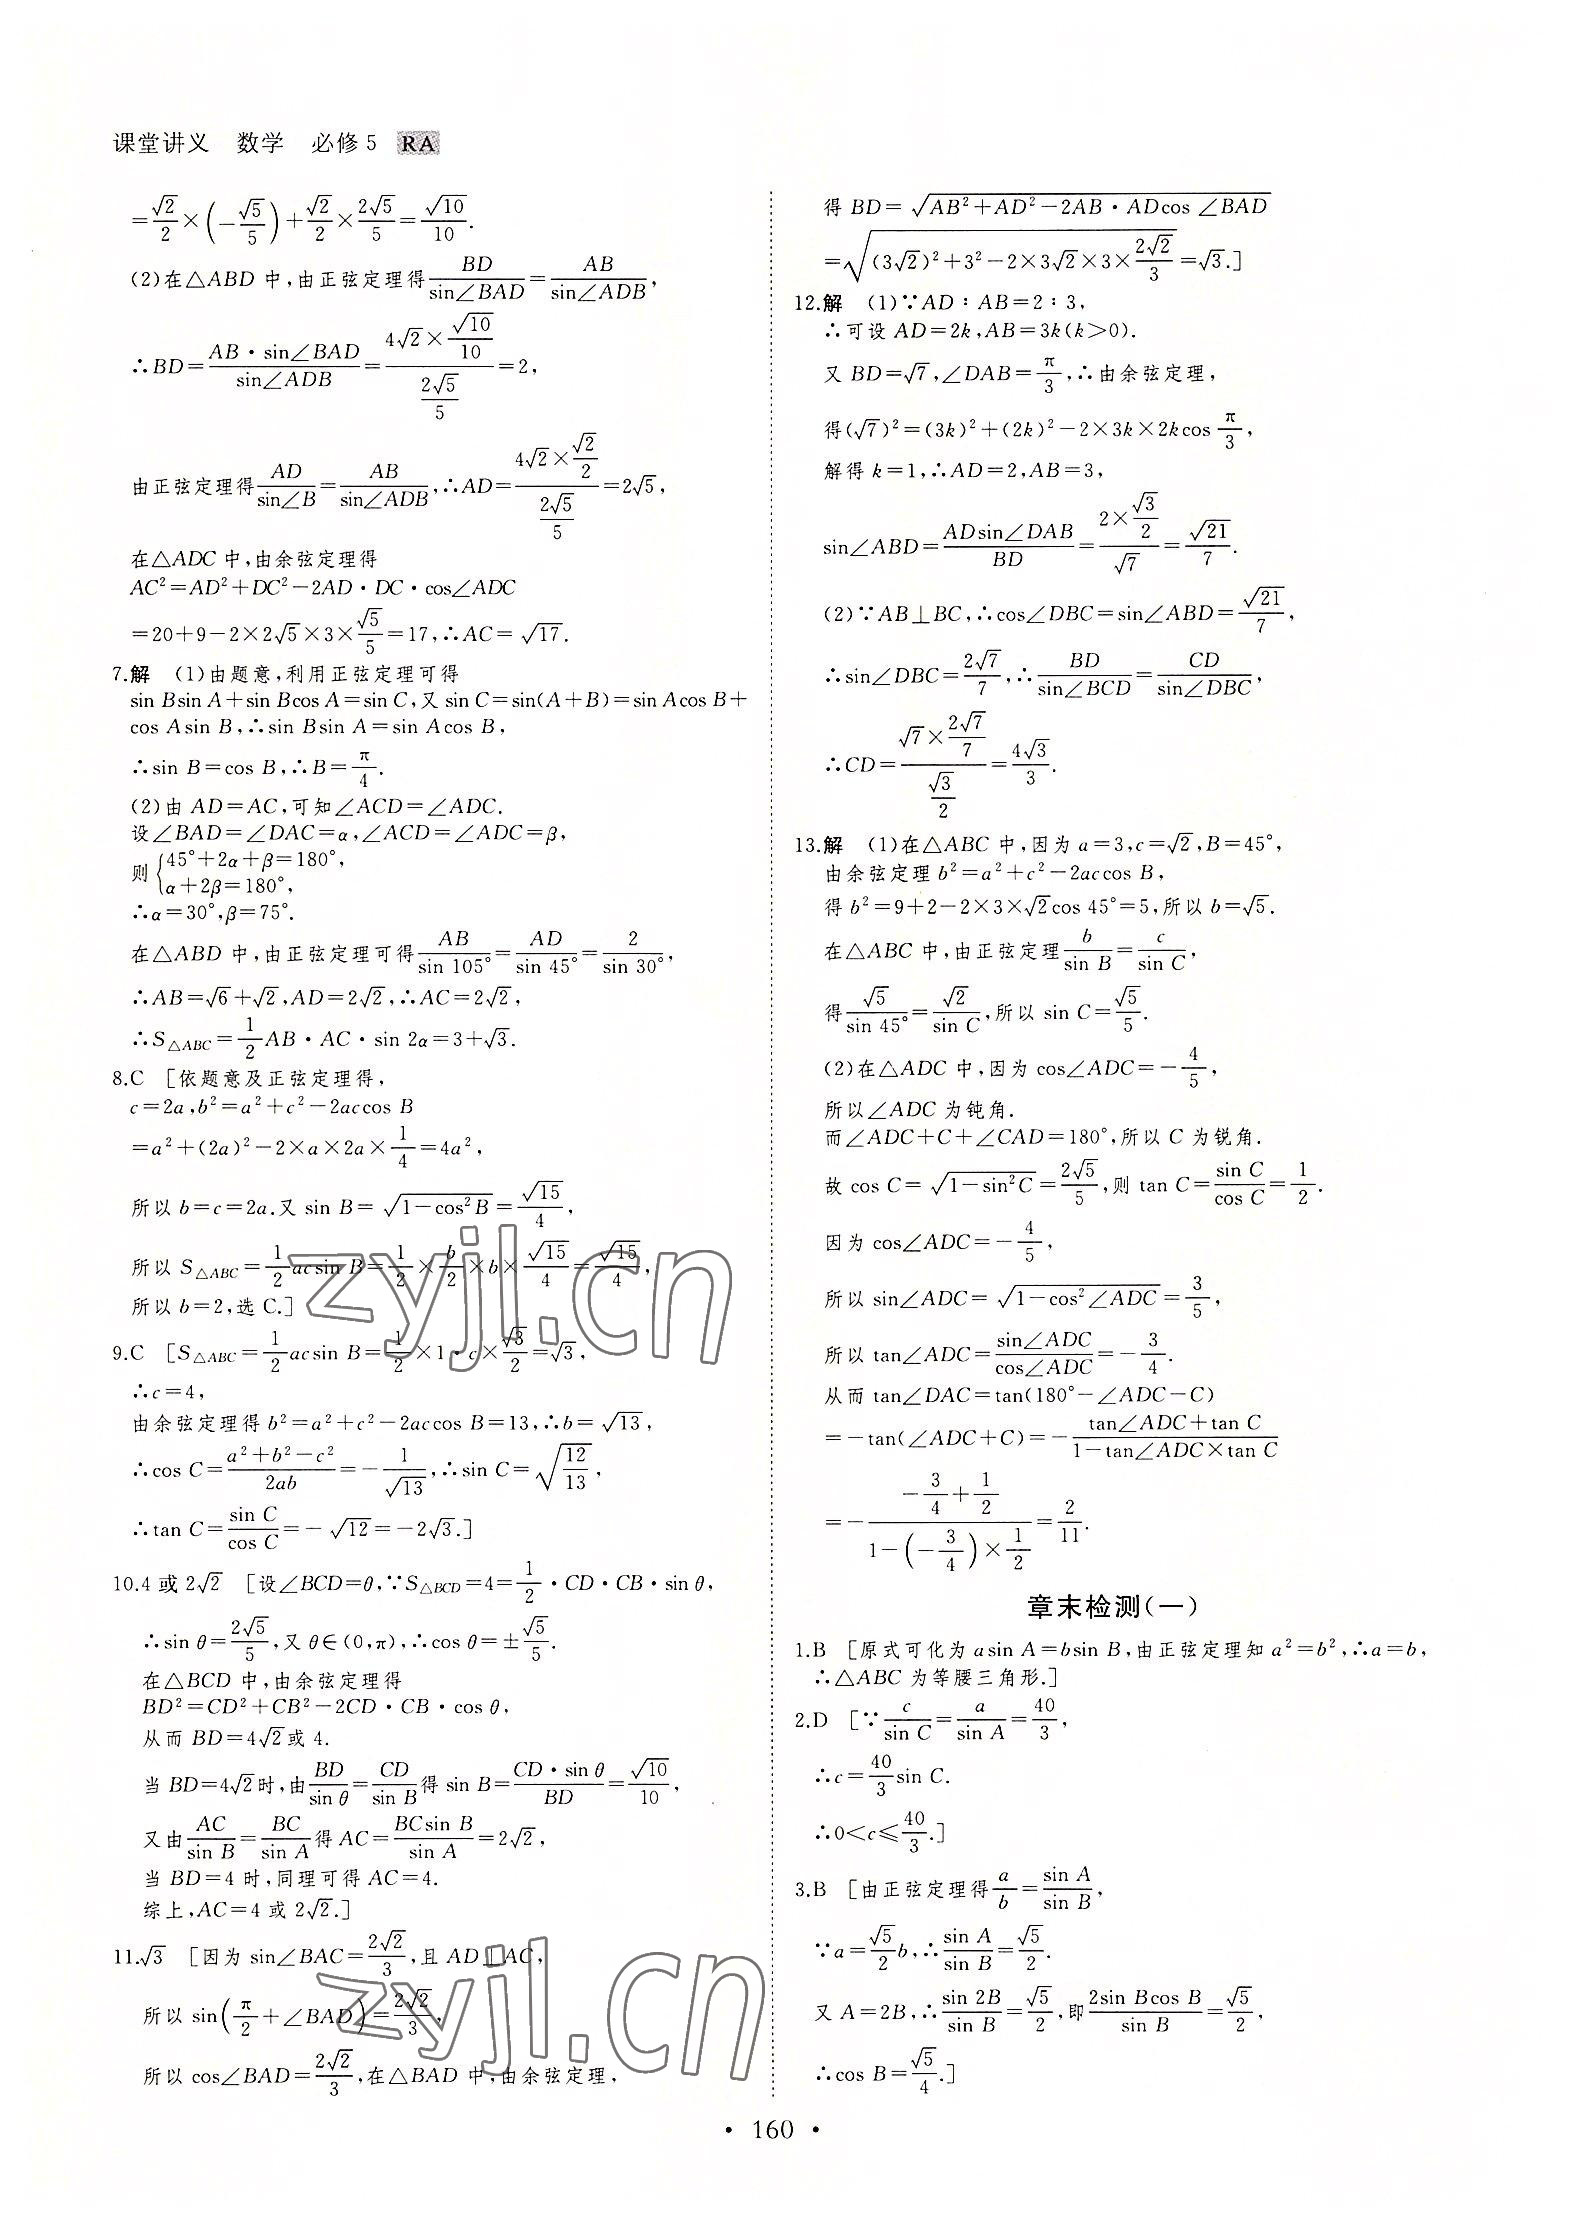 课堂讲义 数学 必修5 RA
=√2/2×(-√5/5)+√2/2×2√5/5=√10/10.
(2)在△ABD 中,由正弦定理得BD/sin∠BAD=AB/sin∠ADB,
∴BD=AB·sin∠BAD/sin∠ADB=(4√2×√10/10)/(2√5/5)=2,
由正弦定理得AD/sin∠B=AB/sin∠ADB,∴AD=(4√2×√2/2)/(2√5/5)=2√5,
在△ADC 中,由余弦定理得
AC²=AD²+DC²-2AD·DC·cos∠ADC
=20+9-2×2√5×3×√5/5=17,∴AC=√17.
7.解 (1)由题意,利用正弦定理可得
sin Bsin A+sin Bcos A=sin C,又 sin C=sin(A+B)=sin Acos B+
cos Asin B,∴sin Bsin A=sin Acos B,
∴sin B=cos B,∴B=π/4.
(2)由 AD=AC,可知∠ACD=∠ADC.
设∠BAD=∠DAC=α,∠ACD=∠ADC=β,
则{45°+2α+β=180°,
α+2β=180°,
∴α=30°,β=75°.
在△ABD 中,由正弦定理可得AB/sin 105°=AD/sin 45°=2/sin 30°,
∴AB=√6+√2,AD=2√2,∴AC=2√2,
∴S△ABC=1/2AB·AC·sin 2α=3+√3.
8.C [依题意及正弦定理得,
c=2a,b²=a²+c²-2accos B
=a²+(2a)²-2×a×2a×1/4=4a²,
所以 b=c=2a.又 sin B=√(1-cos²B)=√15/4,
所以 S△ABC=1/2acsin B=1/2×b/2×b×√15/4=√15/4,
所以 b=2,选 C.]
9.C [S△ABC=1/2acsin B=1/2×1·c×√3/2=√3,
∴c=4,
由余弦定理得 b²=a²+c²-2accos B=13,∴b=√13,
∴cos C=(a²+b²-c²)/2ab=-1/√13,∴sin C=√(12/13),
∴tan C=sin C/cos C=-√12=-2√3.]
10.4 或 2√2 [设∠BCD=θ,∵S△BCD=4=1/2·CD·CB·sin θ,
∴sin θ=2√5/5,又 θ∈(0,π),∴cos θ=±√5/5.
在△BCD 中,由余弦定理得
BD²=CD²+CB²-2CD·CB·cos θ,
从而 BD=4√2或 4.
当 BD=4√2时,由BD/sin θ=CD/sin B得 sin B=CD·sin θ/BD=√10/10,
又由AC/sin B=BC/sin A得 AC=BCsin B/sin A=2√2,
当 BD=4 时,同理可得 AC=4.
综上,AC=4 或 2√2.]
11.√3 [因为 sin∠BAC=2√2/3,且 AD⊥AC,
所以 sin(π/2+∠BAD)=2√2/3,
所以 cos∠BAD=2√2/3,在△BAD 中,由余弦定理,
得 BD=√(AB²+AD²-2AB·ADcos∠BAD)
=√((3√2)²+3²-2×3√2×3×2√2/3)=√3.]
12.解 (1)∵AD∶AB=2∶3,
∴可设 AD=2k,AB=3k(k>0).
又 BD=√7,∠DAB=π/3,∴由余弦定理,
得(√7)²=(3k)²+(2k)²-2×3k×2kcos π/3,
解得 k=1,∴AD=2,AB=3,
sin∠ABD=ADsin∠DAB/BD=(2×√3/2)/√7=√21/7.
(2)∵AB⊥BC,∴cos∠DBC=sin∠ABD=√21/7,
∴sin∠DBC=2√7/7,∴BD/sin∠BCD=CD/sin∠DBC,
∴CD=(√7×2√7/7)/(√3/2)=4√3/3.
13.解 (1)在△ABC 中,因为 a=3,c=√2,B=45°,
由余弦定理 b²=a²+c²-2accos B,
得 b²=9+2-2×3×√2cos 45°=5,所以 b=√5.
在△ABC 中,由正弦定理b/sin B=c/sin C,
得√5/sin 45°=√2/sin C,所以 sin C=√5/5.
(2)在△ADC 中,因为 cos∠ADC=-4/5,
所以∠ADC 为钝角.
而∠ADC+C+∠CAD=180°,所以 C 为锐角.
故 cos C=√(1-sin²C)=2√5/5,则 tan C=sin C/cos C=1/2.
因为 cos∠ADC=-4/5,
所以 sin∠ADC=√(1-cos²∠ADC)=3/5,
所以 tan∠ADC=sin∠ADC/cos∠ADC=-3/4.
从而 tan∠DAC=tan(180°-∠ADC-C)
=-tan(∠ADC+C)=-(tan∠ADC+tan C)/(1-tan∠ADC×tan C)
=-(-3/4+1/2)/(1-(-3/4)×1/2)=2/11.
章末检测(一)
1.B [原式可化为 asin A=bsin B,由正弦定理知 a²=b²,∴a=b,
∴△ABC 为等腰三角形.]
2.D [∵c/sin C=a/sin A=40/3,
∴c=40/3sin C.
∴0<c≤40/3.]
3.B [由正弦定理得a/b=sin A/sin B,
∵a=√5/2b,∴sin A/sin B=√5/2.
又 A=2B,∴sin 2B/sin B=√5/2,即2sin Bcos B/sin B=√5/2,
∴cos B=√5/4.]
• 160 •
zyjl.cn
zyjl.cn